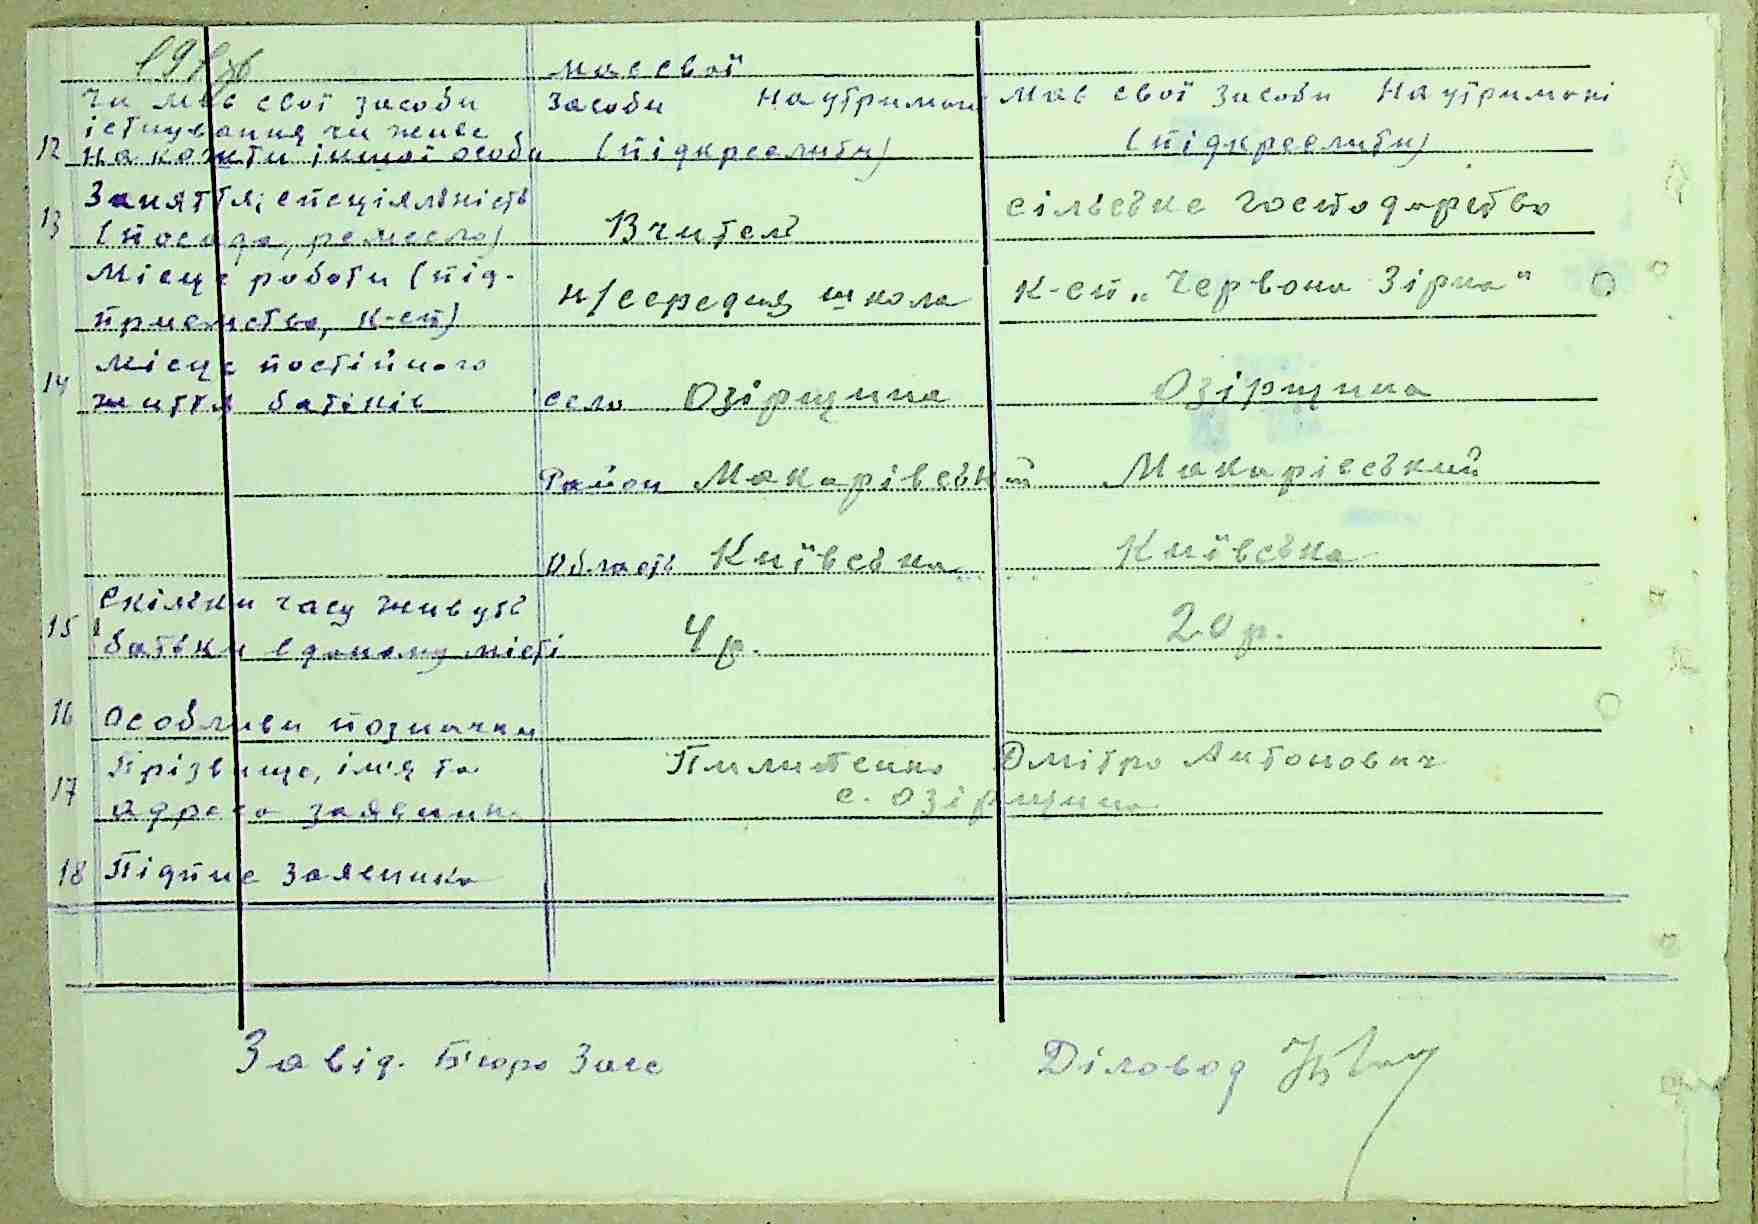 має свої
Чи має свої засоби засоби На утриман має свої засоби На утримані
існування чи живе
12 на кошти іншої особи (підкреслити) (підкреслити)
Заняття, спеціяльність
13 (посада, ремесло) Вчитель сільське господарство
Місце роботи (під-
приємство, к-сп) н/середня школа к-сп „Червона Зірка"
Місце постійного
14 життя батьків село Озірщина Озірщина
Район Макарівський Макарівський
Область Київська Київська
Скільки часу живуть
15 батьки в даному місті 4 р. 20 р.
16 Особливи позначки
Прізвище, ім'я та Пилипенко Дмітро Антонович
17 адреса заявника с. Озірщина
18 Підпис заявника
Завід. Бюро Загс Діловод